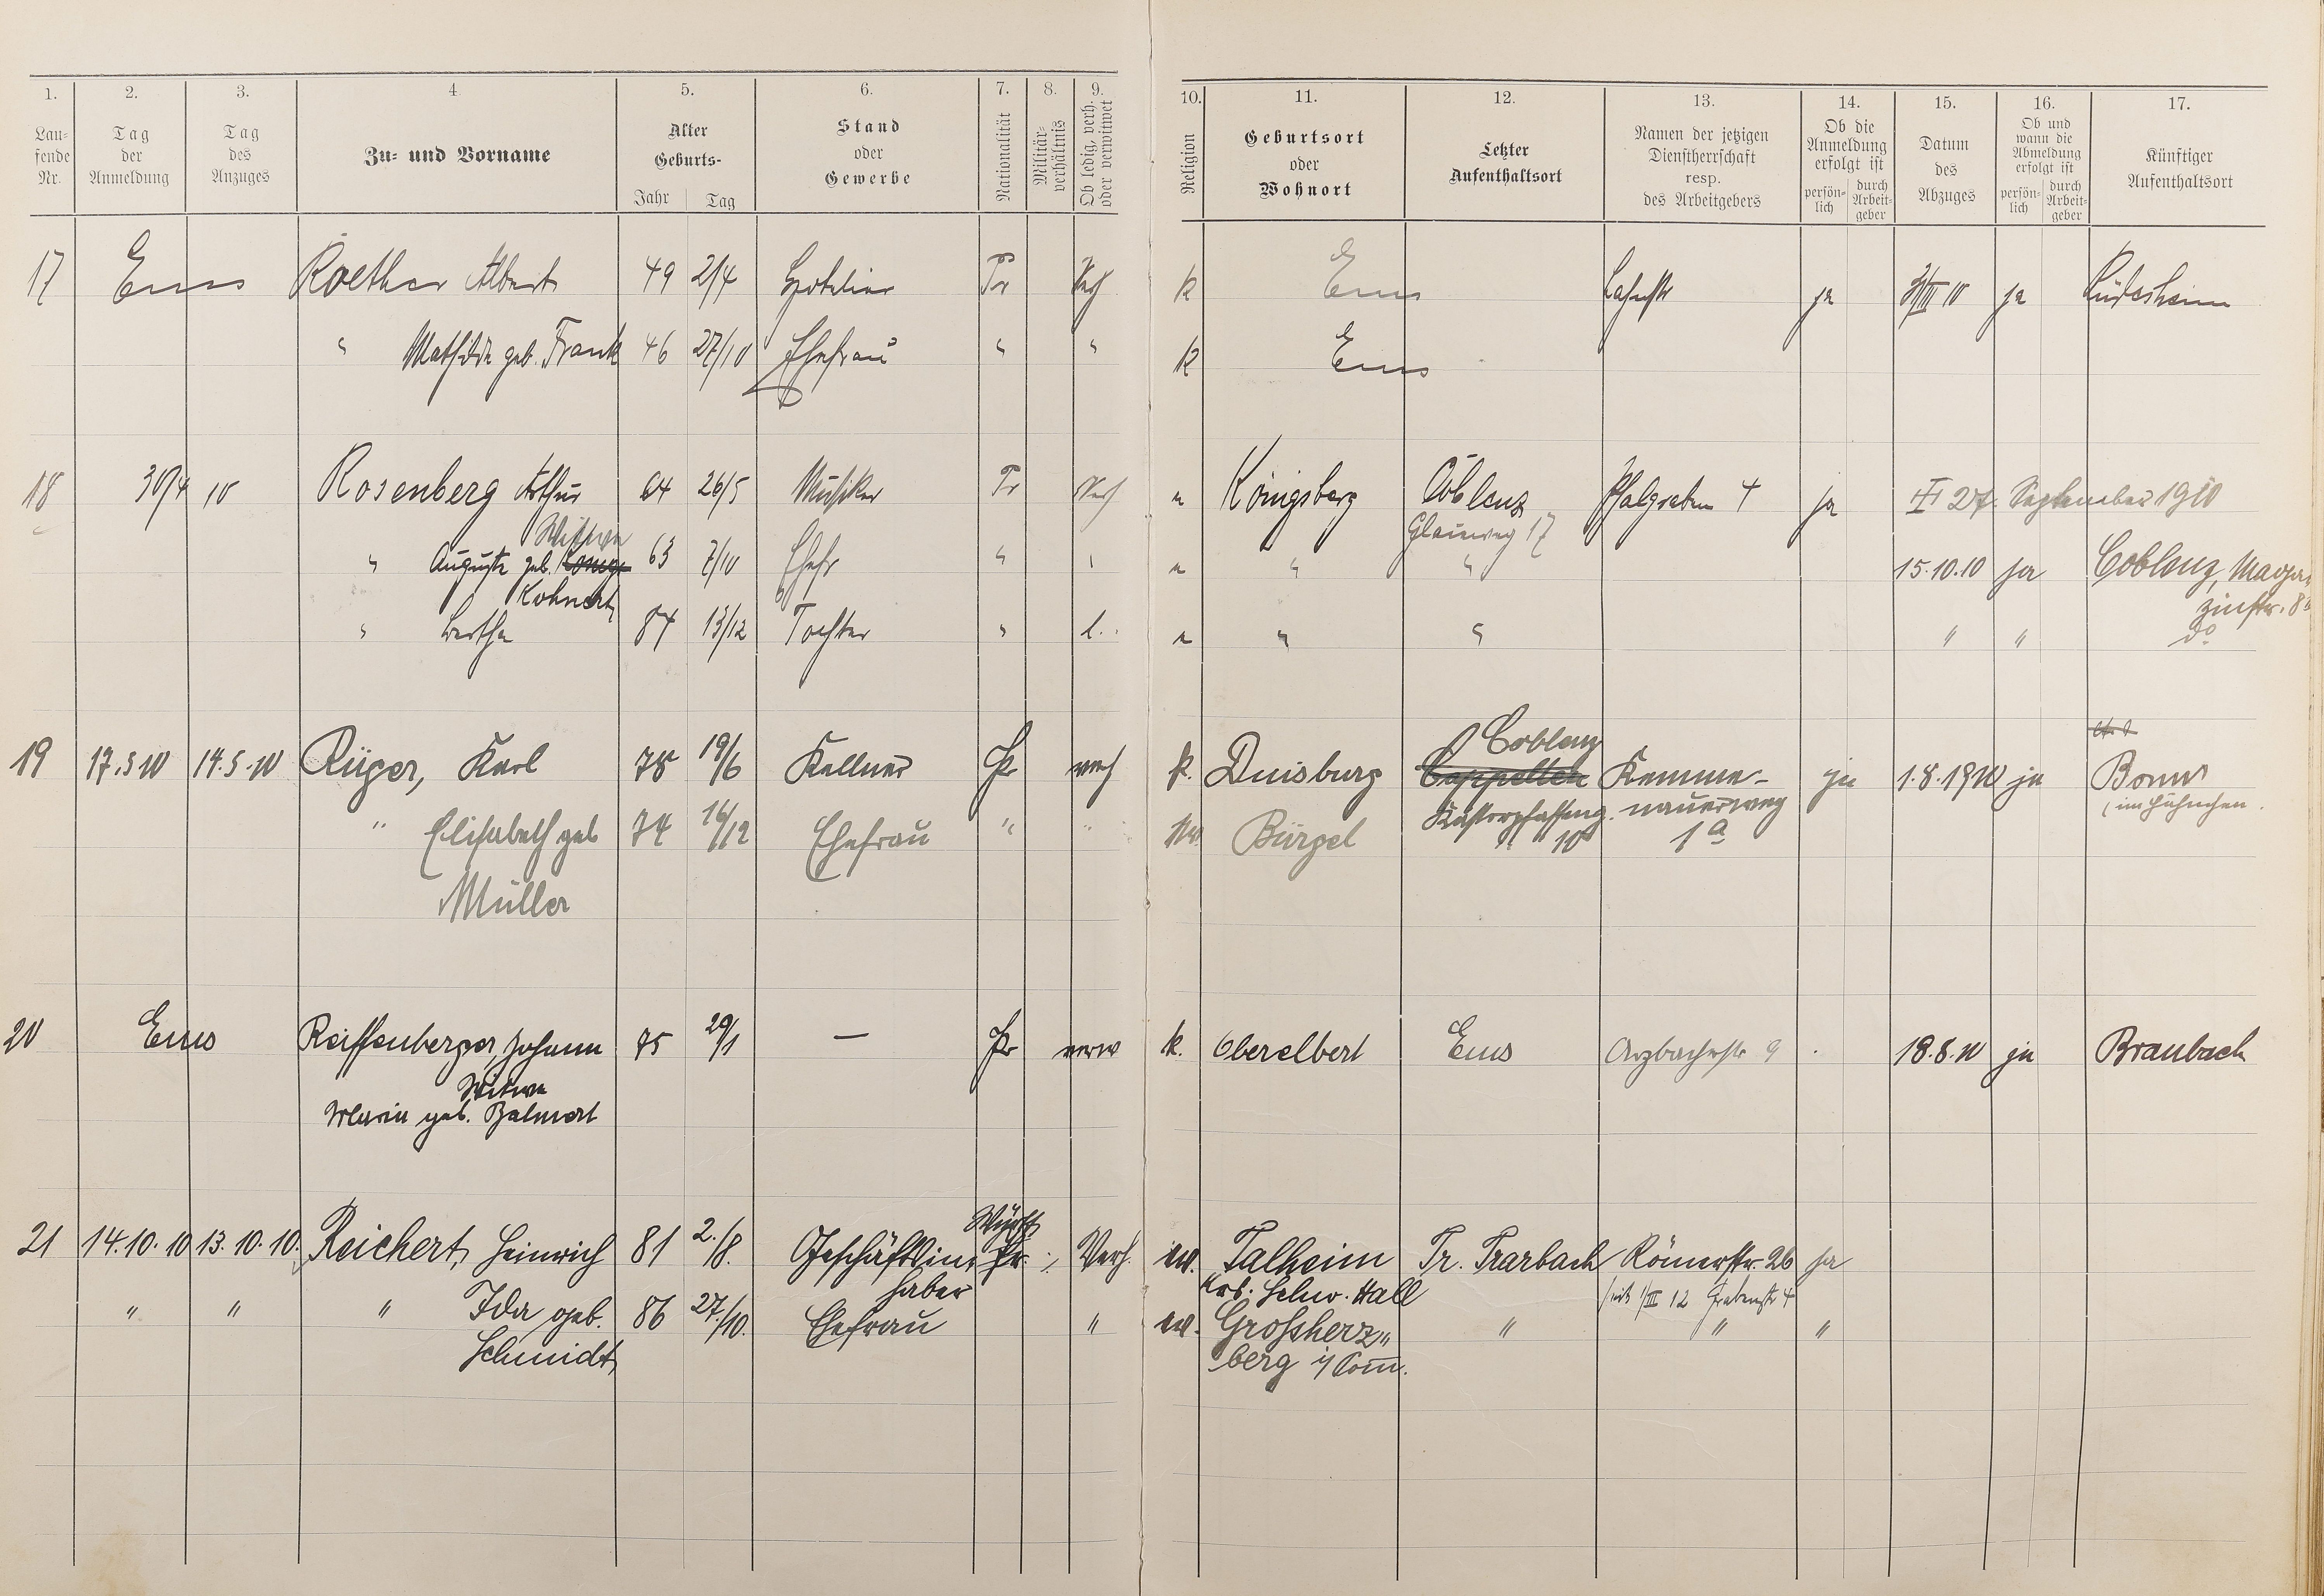 1. 2. 3. 4 5. 6. 7. 8. 9. 10. 11. 12. 13. 14. 15. 16. 17.
Lau-
fende
Nr.
Tag
der
Anmeldung
Tag
des
Anzuges
Zu- und Vorname
Alter
Geburts-
Jahr Tag
Stand
oder
Gewerbe
Nationalität
Militär-
verhältnis
Ob ledig, verh.
oder verwitwet
Religion
Geburtsort
oder
Wohnort
Letzter
Aufenthaltsort
Namen der jetzigen
Dienstherrschaft
resp.
des Arbeitgebers
Ob die
Anmeldung
erfolgt ist
persön-
lich
durch
Arbeit-
geber
Datum
des
Abzuges
Ob und
wann die
Abmeldung
erfolgt ist
persön-
lich
durch
Arbeit-
geber
Künftiger
Aufenthaltsort
17 Ems Roether Albert 49 2/4 Hotelier Pr Verh k Ems Lahnstr ja ja Rüdesheim
" Mathilde geb. Frank 46 27/10 Ehefrau " " k Ems
18 30/4 10 Rosenberg Arthur 64 26/5 Musiker Pr Verh Königsberg Coblenz Pfalgraben 4 ja 27. September 1910
Witwe Glauweg 17
" Auguste geb. 63 7/10 Ehefr " " " 15.10.10 ja Coblenz, Maga-
Kohnert zinstr. 8
" Bertha 84 13/12 Tochter " l. " " " " do
19 17.5 10 14.5.10 Rüger, Karl 78 19/6 Kellner Pr verh k. Duisburg Coblenz Cappellen Kemme- ja 1.8.1910 ja Bonn
nauerweg im Hühnchen.
" Elisabeth geb 74 16/12 Ehefrau " " Bürgel 10 1a
Müller
20 Ems Reiffenberger, Johann 75 29/1 — Pr verw k. Oberelbert Ems Arzbacherstr 9 18.8.10 ja Braubach
Witwe
Maria geb. Balmert
21 14.10.10 13.10.10. Reichert, Heinrich 81 2./8. Geschäftsin- Württ Pr. Verh. ev. Talheim Tr. Trarbach Römerstr. 26 ja
haber Schw. Hall seit 1/III 12 Grabenstr 4
" " " Ida geb. 86 27./10. Ehefrau " ev. Grossherz" " " "
Schmidt berg i/ Pom.